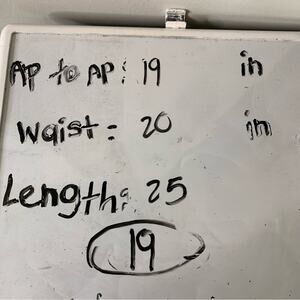 Ap to Ap: 19 in
Waist: 20 in
Length: 25
19